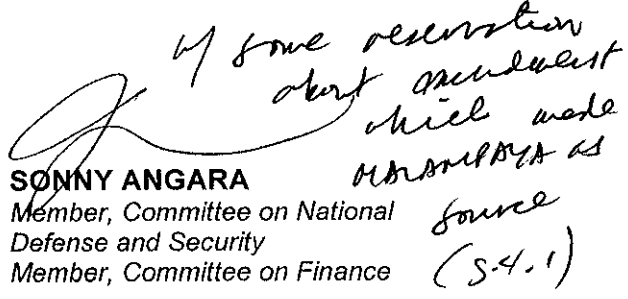 w/ some reservation
about amendment
which made
MALAMPAYA as
source
(S.4.1)
SONNY ANGARA
Member, Committee on National
Defense and Security
Member, Committee on Finance